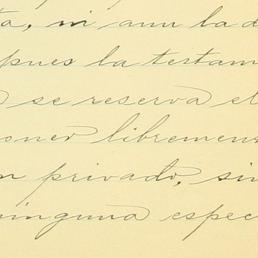 ta, ni aun la d
spues la testam
se reserva el
oner libremen
n privado, sin
ninguna espec